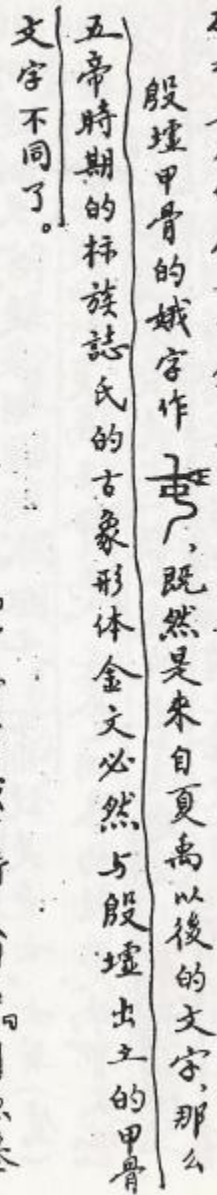 殷墟甲骨的娥字作，既然是来自夏禹以後的文字，那么
五帝時期的标族誌氏的古象形体金文必然与殷墟出土的甲骨
文字不同了。